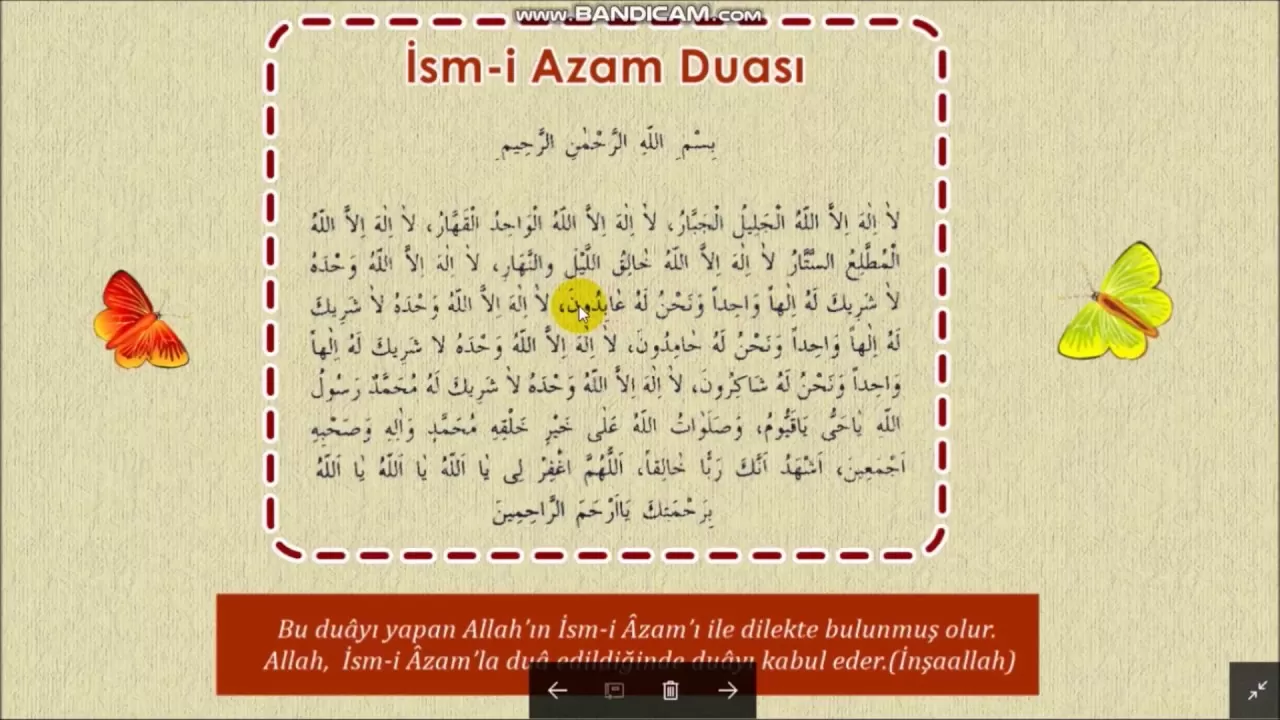 www.BANDICAM.com
İsm-i Azam Duası
بِسْمِ اللّهِ الرَّحْمٰنِ الرَّحِيمِ
لاٰ اِلٰهَ اِلاَّ اللّهُ الْجَلِيلُ الْجَبَّارُ، لاٰ اِلٰهَ اِلاَّ اللّهُ الْوَاحِدُ الْقَهَّارُ، لاٰ اِلٰهَ اِلاَّ اللّهُ
الْمُطَّلِعُ السَّتَّارُ لاٰ اِلٰهَ اِلاَّ اللّهُ خٰالِقُ اللَّيْلِ والنَّهَارِ، لاٰ اِلٰهَ اِلاَّ اللّهُ وَحْدَهُ
لاٰ شَرِيكَ لَهُ اِلٰهاً وَاحِداً وَنَحْنُ لَهُ عٰابِدُونَ، لاٰ اِلٰهَ اِلاَّ اللّهُ وَحْدَهُ لاٰ شَرِيكَ
لَهُ اِلٰهاً وَاحِداً وَنَحْنُ لَهُ حٰامِدُونَ، لاٰ اِلٰهَ اِلاَّ اللّهُ وَحْدَهُ لا شَرِيكَ لَهُ اِلٰهاً
وَاحِداً وَنَحْنُ لَهُ شَاكِرُونَ، لاٰ اِلٰهَ اِلاَّ اللّهُ وَحْدَهُ لاٰ شَرِيكَ لَهُ مُحَمَّدٌ رَسُولُ
اللّهِ يٰاحَىُّ يَاقَيُّومُ، وَصَلَوٰاتُ اللّهُ عَلٰى خَيْرِ خَلْقِهِ مُحَمَّدٍ وَاٰلِهِ وَصَحْبِهِ
اَجْمَعِينَ، اَشْهَدُ اَنَّكَ رَبًّا خٰالِقاً، اَللَّهُمَّ اغْفِرْ لِى يٰا اَللّهُ يٰا اَللّهُ يٰا اَللّهُ
بِرَحْمَتِكَ يَااَرْحَمَ الرَّاحِمِينَ
Bu duâyı yapan Allah'ın İsm-i Âzam'ı ile dilekte bulunmuş olur.
Allah, İsm-i Âzam'la duâ edildiğinde duâyı kabul eder.(İnşaallah)